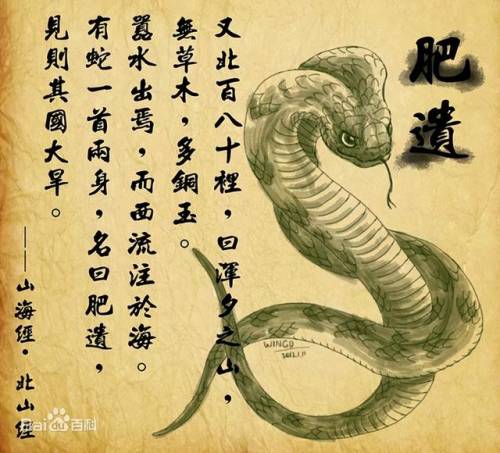 肥遺
又北百八十裡，曰渾夕之山，
無草木，多銅玉。
囂水出焉，而西流注於海。
有蛇一首兩身，名曰肥遺，
見則其國大旱。
——山海經·北山經
WINGO
2012.1.11
Bai百科